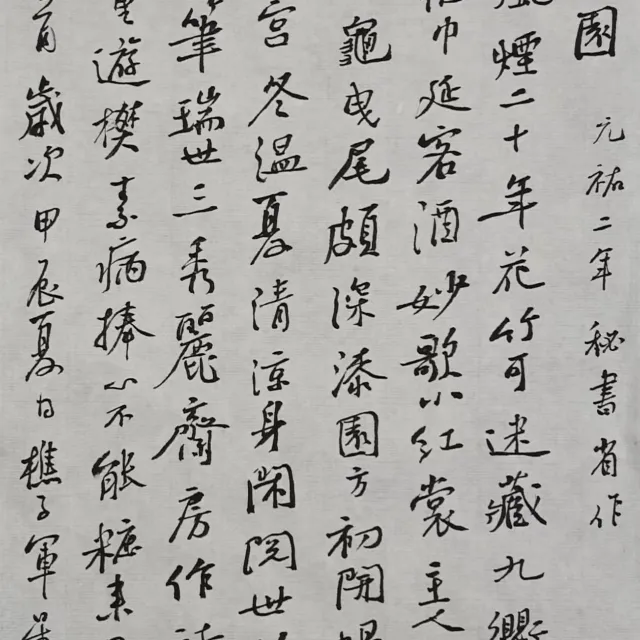 園 元祐二年秘書省作
煙二十年花竹可迷藏九
巾延客酒妙歌小紅裳主人
龜曳尾頗深漆園方初開
宮冬温夏清涼身閑閲世
筆瑞世三秀麗齋房作
遊樊素病捧心不能
歲次甲辰夏月樵子軍